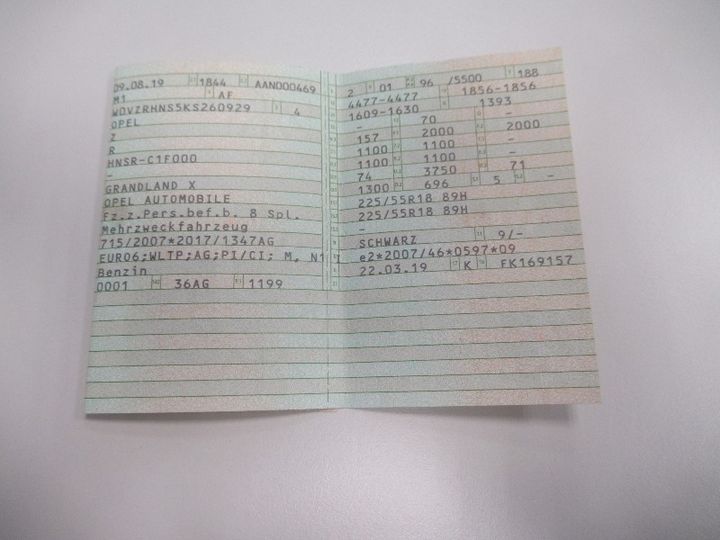 09.08.19 1844 AAN000469
M1 AF
W0VZRHNS5KS260929 4
OPEL
Z
R
HNSR-C1F000
-
GRANDLAND X
OPEL AUTOMOBILE
Fz.z.Pers.bef.b. 8 Spl.
Mehrzweckfahrzeug
715/2007*2017/1347AG
EURO6;WLTP;AG;PI/CI; M, N1 I
Benzin
0001 36AG 1199
2 01 96 /5500 188
4477-4477 1856-1856
1609-1630 1393
- 70 -
157 2000 2000
1100 1100 -
1100 1100 -
74 3750 71
1300 696 5 -
225/55R18 89H
225/55R18 89H
-
SCHWARZ 9/-
e2*2007/46*0597*09
22.03.19 K FK169157